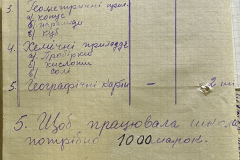 3. Геометричні прил.
а) конус
б) піраміди
в) куб
4. Хемичні приладдє
а) Пробірки
б) кислоти
в) солі
5. Географічні карти – 2 шт
5. Щоб працювала школа
потрібно 1000 марок.